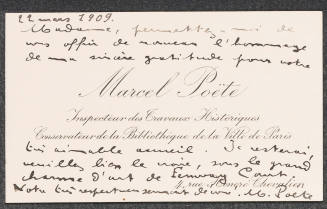 22 mars 1909.
Madame, permettez-moi de
vous offrir de nouveau l'hommage
de ma sincère gratitude pour votre
Marcel Poëte
Inspecteur des Travaux Historiques
Conservateur de la Bibliothèque de la Ville de Paris
très aimable accueil. Je resterai,
veuillez bien le croire, sous le grand
charme d'art de Court.
4, rue Chevalier
Votre très respectueusement dévoué. M. Poëte